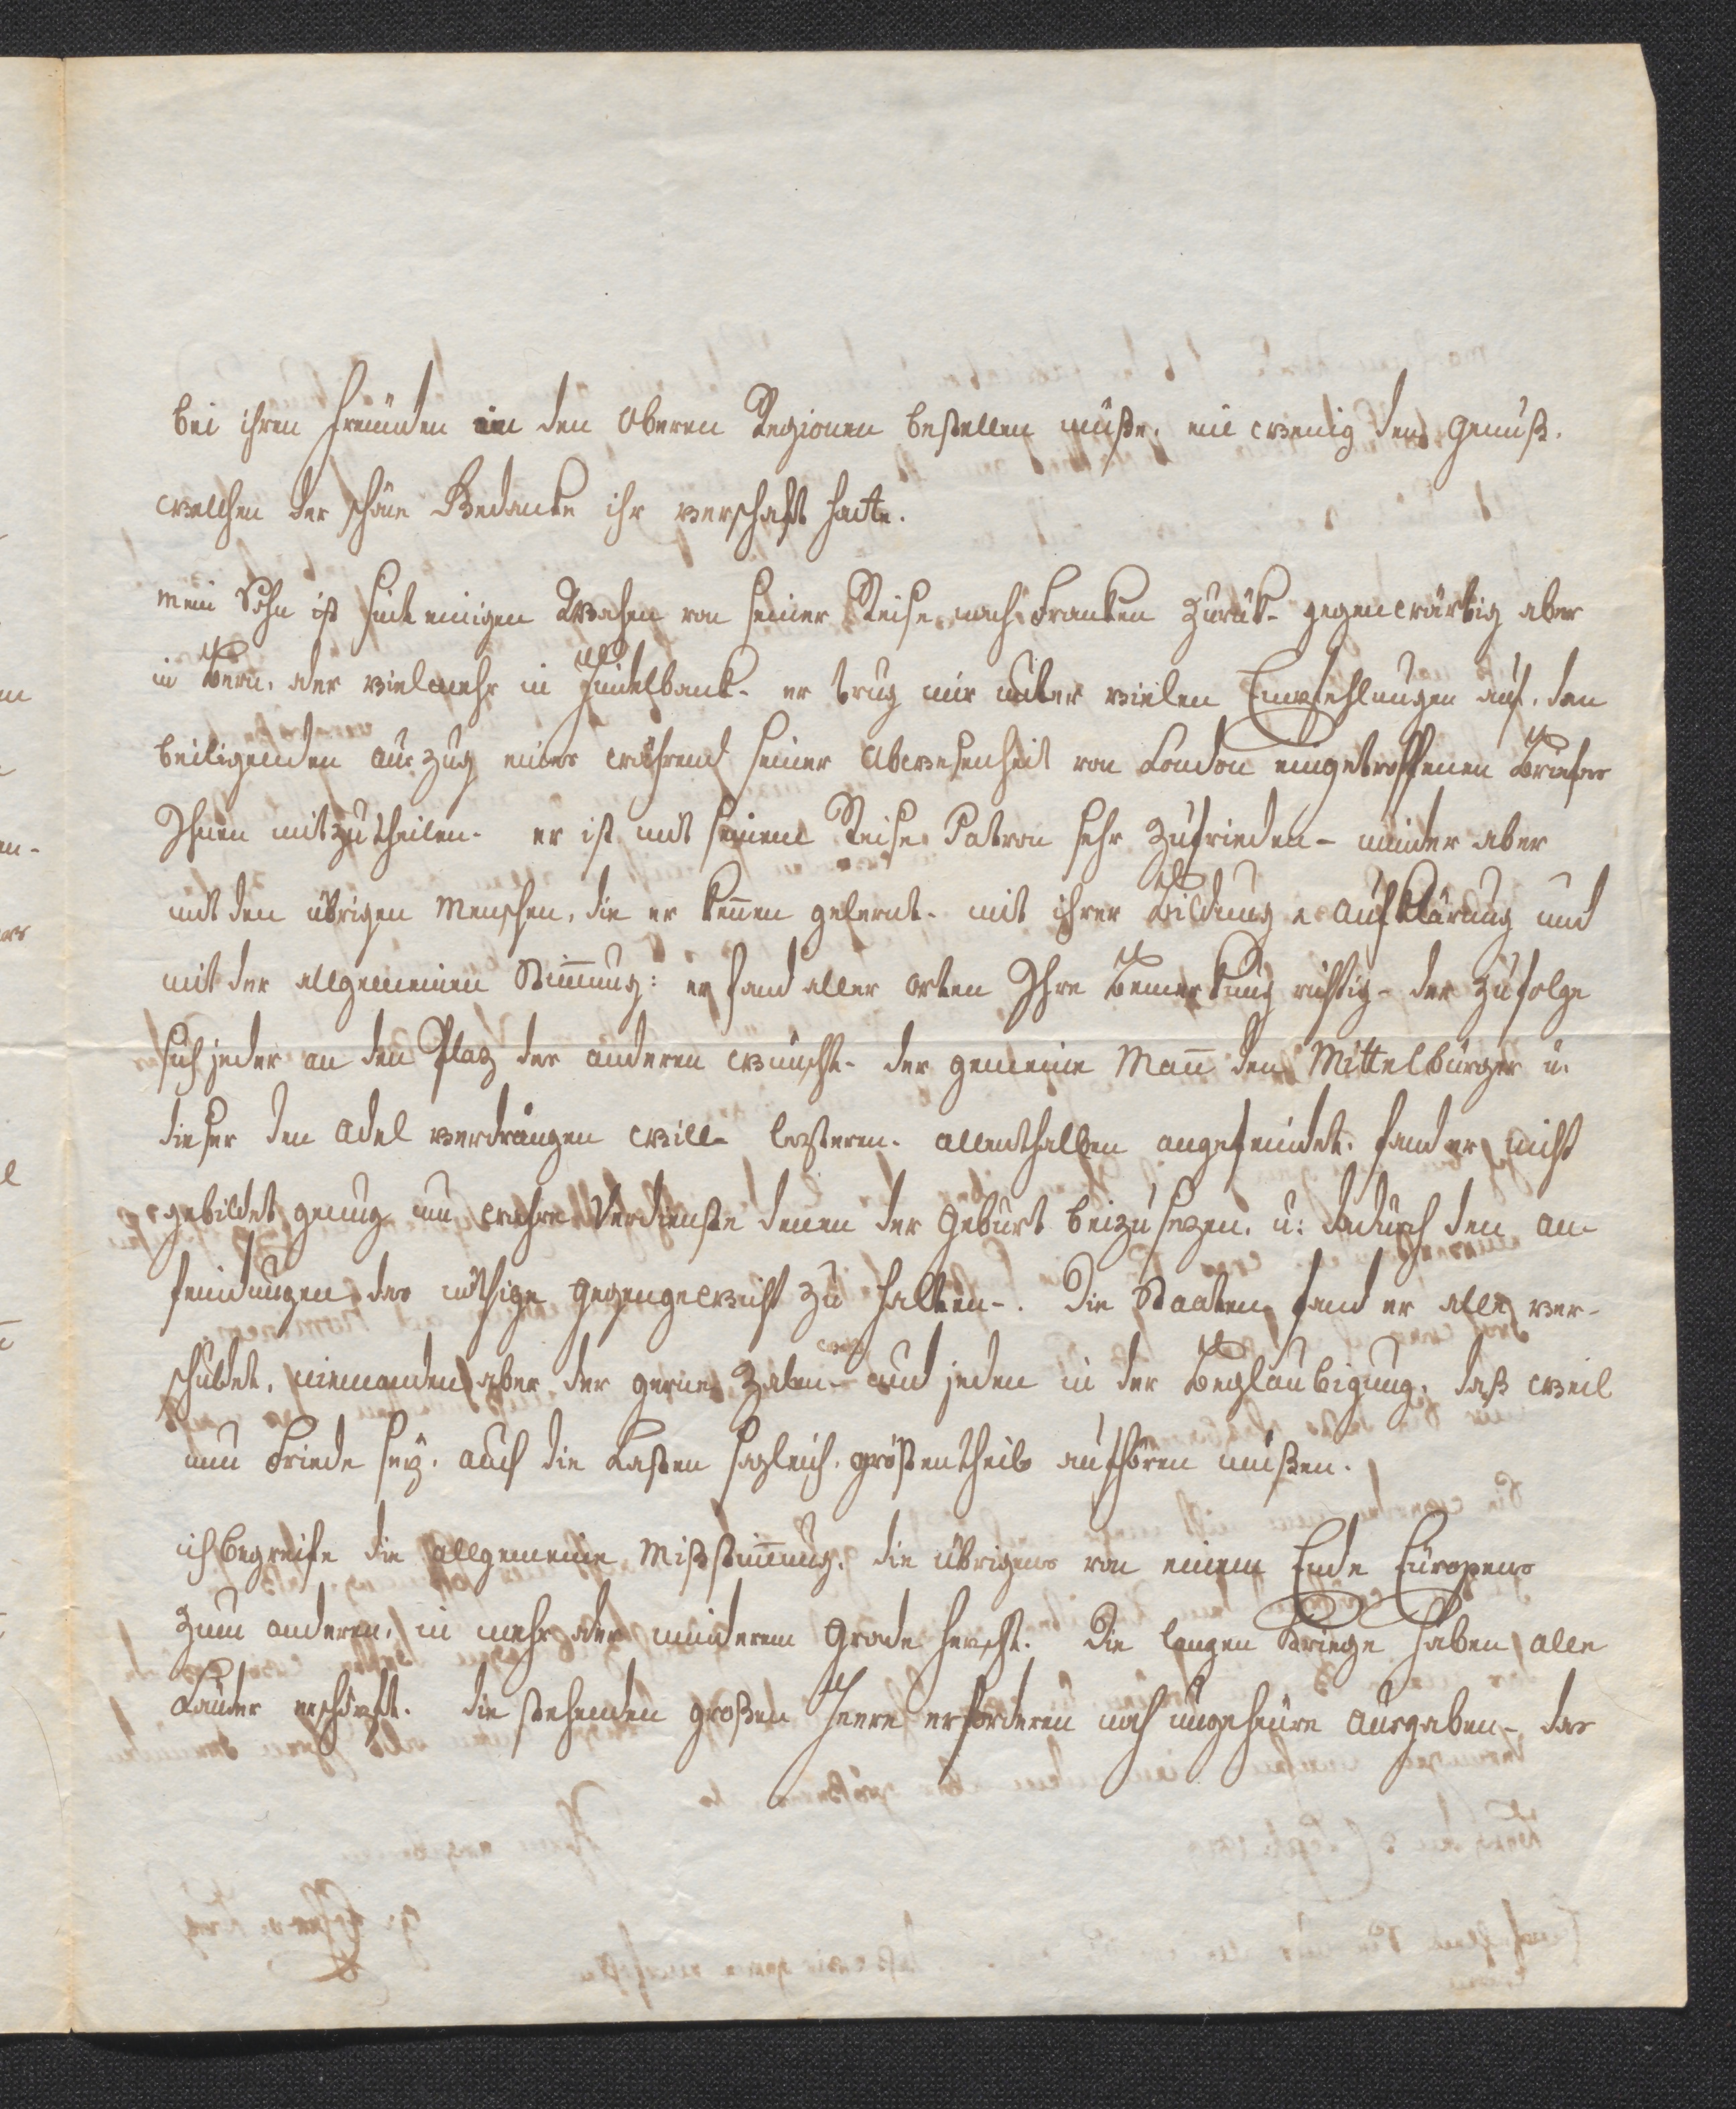 bei ihren Freünden in den Oberen Regionen bestellen müße. ein wenig des Genuß.
welchen der schöne Gedanke ihr verschaft hatte.
mein Sohn ist seit einigen Wochen von seiner Reise nach Franken zurük- gegenwärtig aber
in Bern, oder vielmehr in Hindelbank- er trug mir unter vielen Empfehlungen auf, den
beiligenden auszug eines während seiner Abwesenheit von London eingetroffenen Briefes
Ihnen mitzutheilen- er ist mit seinem Reise Patron sehr zufrieden- minder aber
mit den übrigen Menschen, die er kennen gelernt- mit ihrer Bildung u Aufklärung und
mit der allgemeinen Stim̄ung: er fand aller orten Ihre Bemerkung richtig- der zufolge
sich jeder an den Plaz des anderen wünscht- der gemeine Mañ den Mittelbürger u:
dieser den Adel verdrängen will- lezteren- allenthalben angefeindet, fand er nicht
gebildet genug um wahre Verdienste denen der Geburt beizusezen, u: dadurch den an-
feindungen das nöthige Gegengewicht zu halten-. Die Staaten fand er alle ver-
schuldet, niemanden aber der gerne zalen- und jeden in der Beglaubigung, daß weil
nun Friede seÿ, auch die Lasten sogleich, größtentheils aufhören müßen.
ich begreife die allgemeine Mißstim̄ung, die übrigens von einem Ende Europens
zum anderen, in mehr oder minderem Grade herscht. Die langen Kriege haben alle
Länder erschöpft. die stehenden großen Heere erforderen noch ungeheüre Ausgaben- das